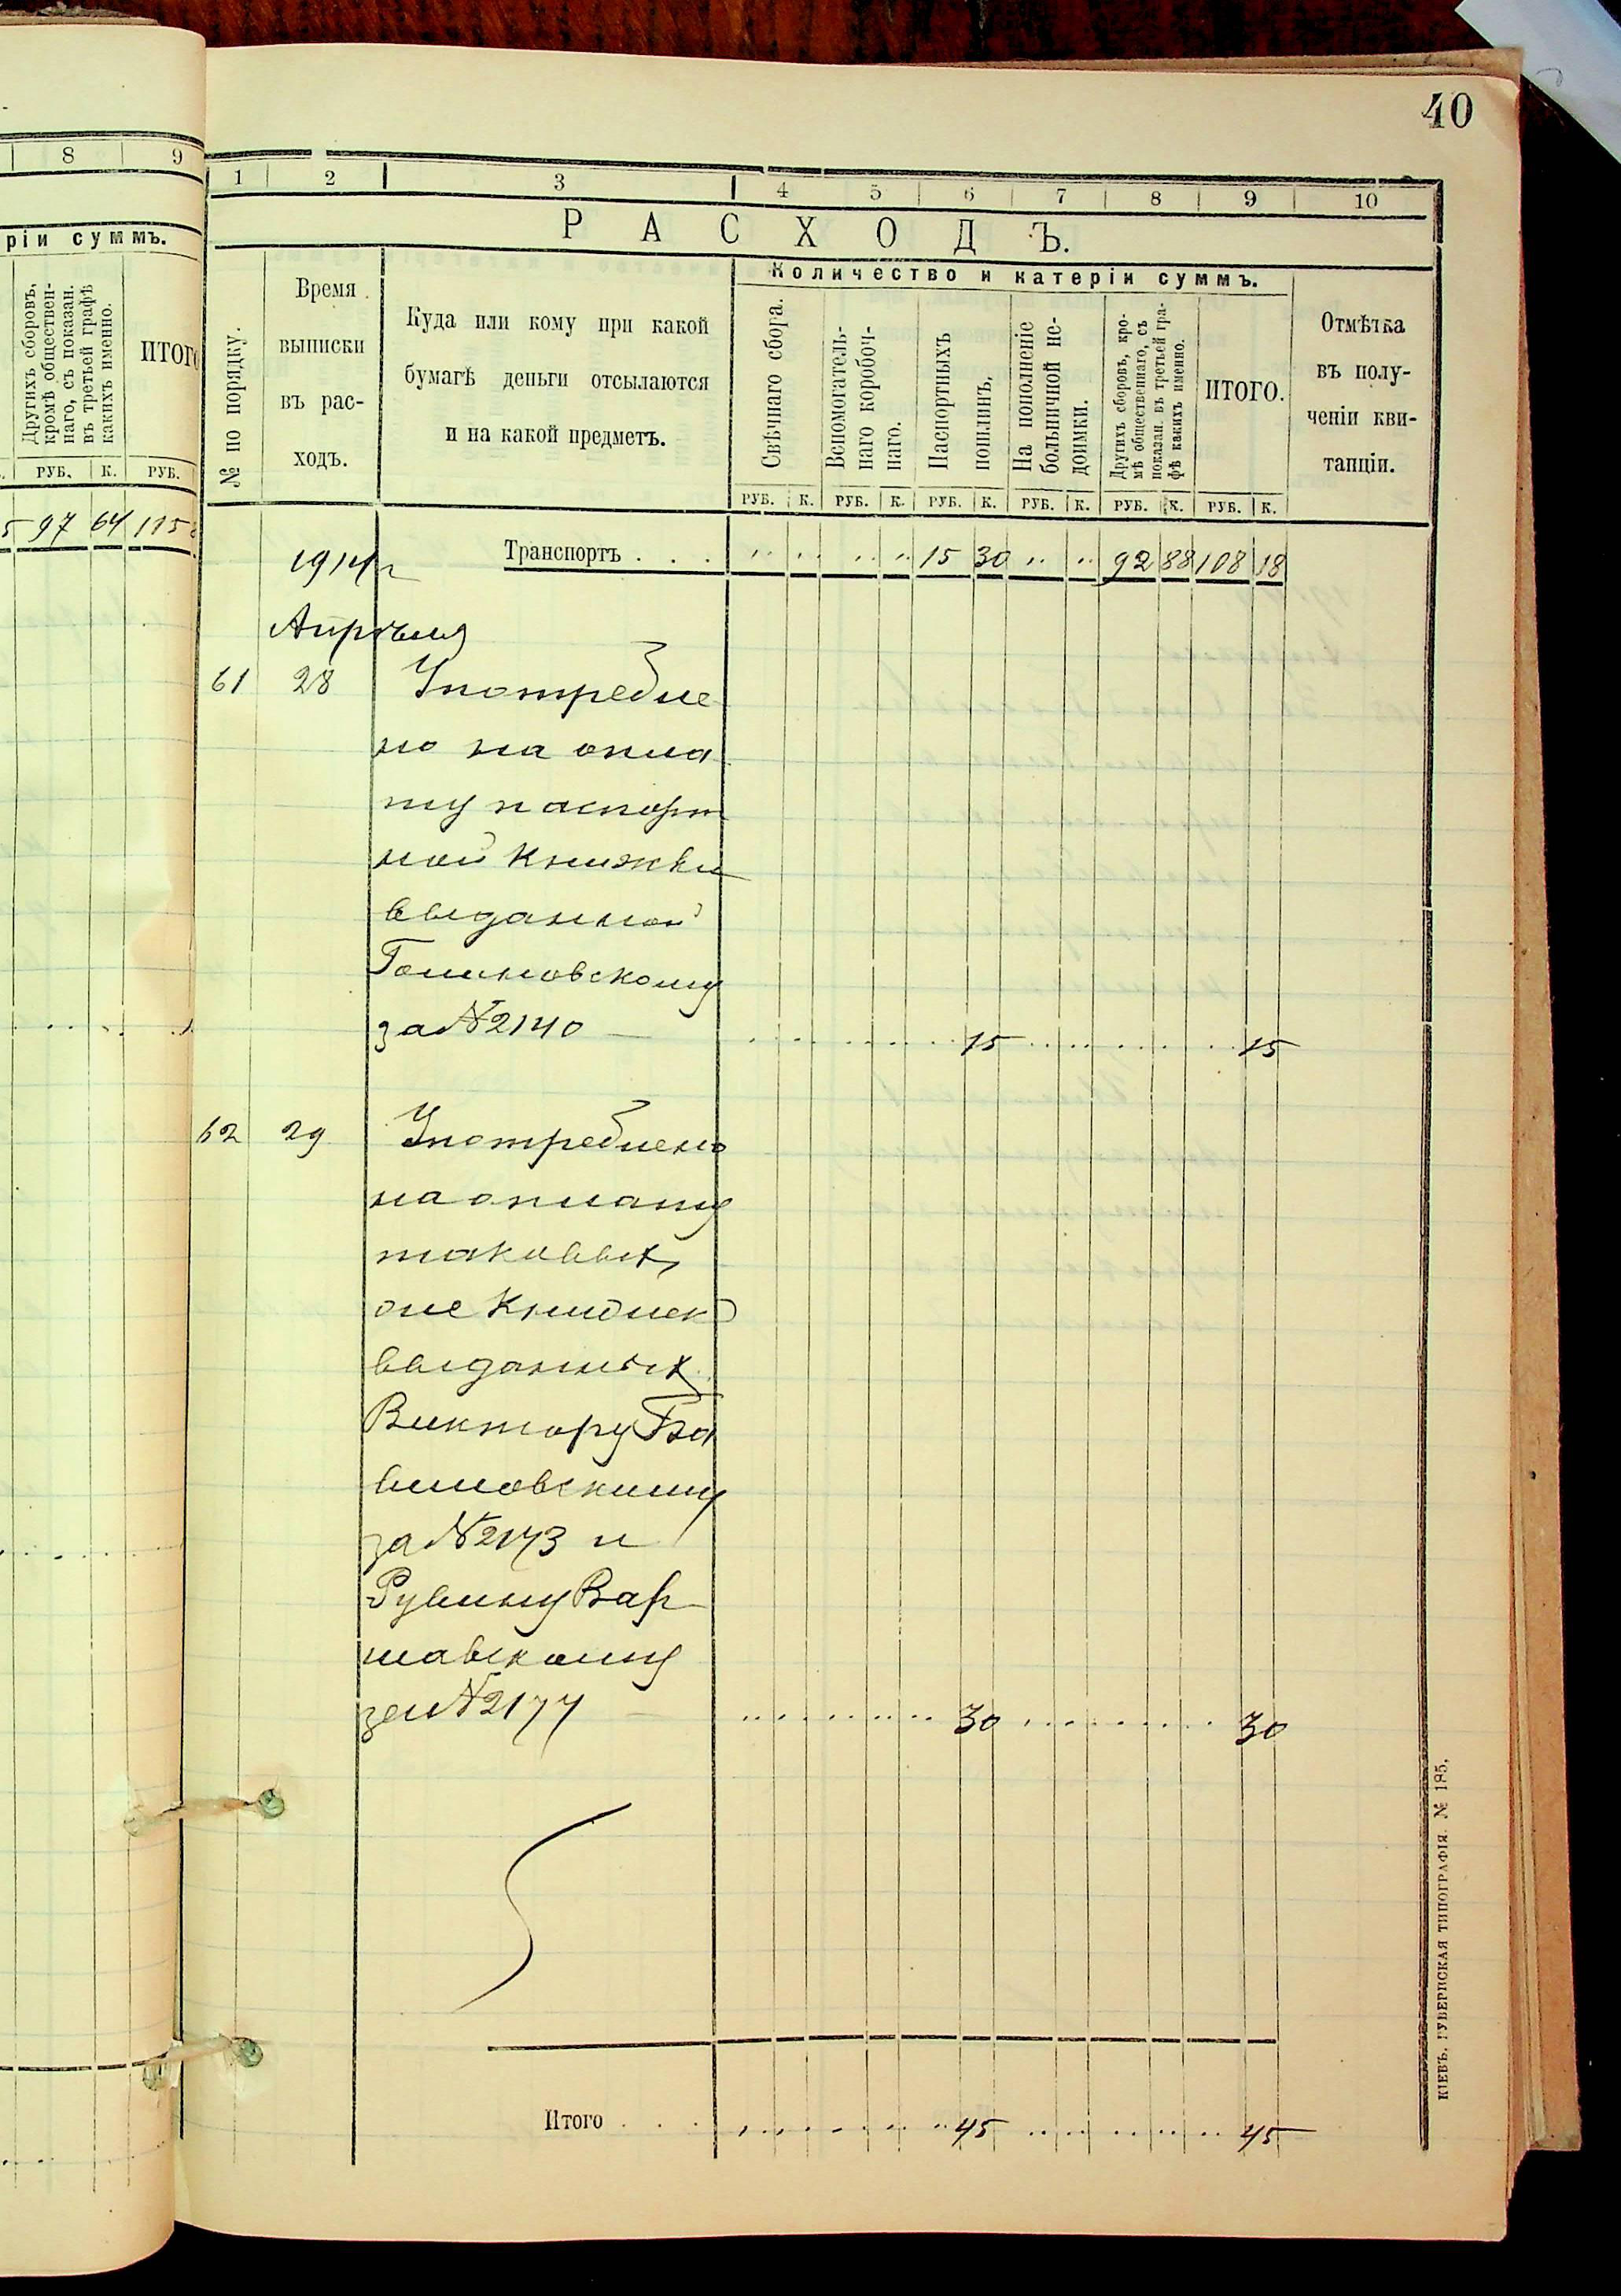 40
8 9
ріи суммъ.
Другихъ сборовъ,
кромѣ обществен-
наго, съ показан.
въ третьей графѣ
какихъ именно.
ИТОГО
РУБ. К. РУБ.
97 64 115
1 2 3 4 5 6 7 8 9 10
РАСХОДЪ.
№ по порядку.
Время
выписки
въ рас-
ходъ.
Куда или кому при какой
бумагѣ деньги отсылаются
и на какой предметъ.
Количество и катеріи суммъ.
Свѣчнаго сбора.
Вспомогатель-
наго коробоч-
наго.
Паспортныхъ
пошлинъ.
На пополненіе
больничной не-
доимки.
Другихъ сборовъ, кро-
мѣ общественнаго, съ
показан. въ третьей гра-
фѣ какихъ именно.
ИТОГО.
Отмѣтка
въ полу-
ченіи кви-
танціи.
РУБ. К. РУБ. К. РУБ. К. РУБ. К. РУБ. К. РУБ. К.
1914 г Транспортъ . . . 15 30 92 88 108 18
Апрѣля
61 28 Употребле
но на опла
ту паспорт
ной книжки
выданной
Голиновскому
за № 2140 — 15 15
62 29 Употреблено
на оплату
таковых
выданных
Виктору Ба
виловскому
за № 2173 и
Рувину Вар
шавскому
за № 2177 — 30 30
Итого . . . 45 45
КІЕВЪ, ГУБЕРНСКАЯ ТИПОГРАФІЯ. № 185.